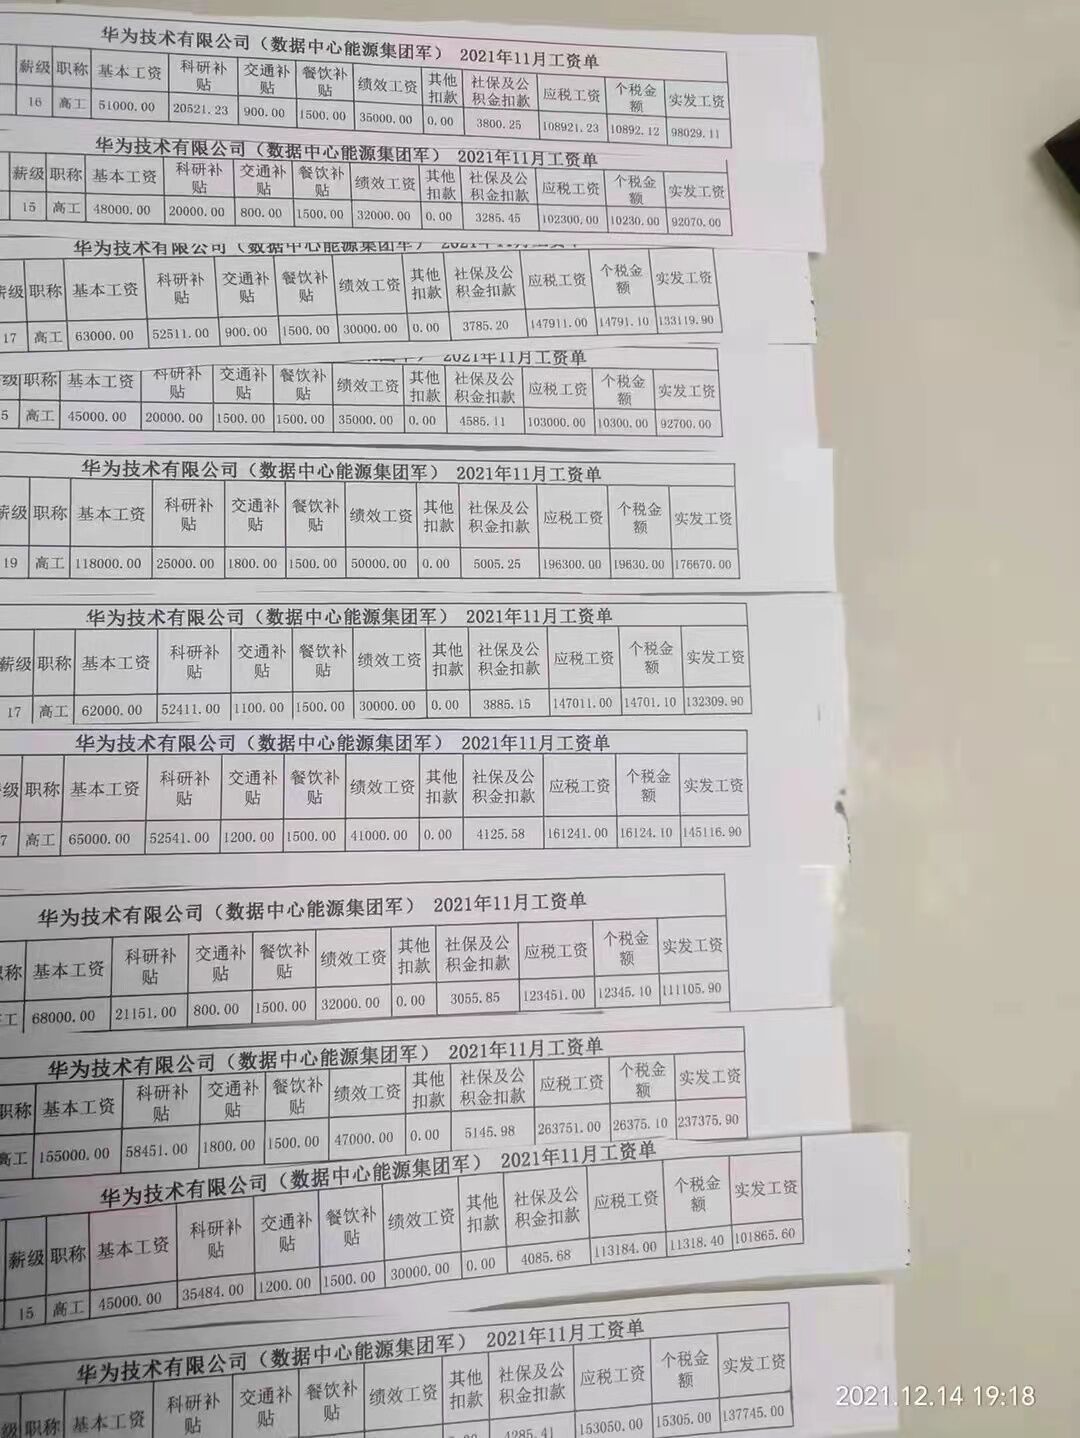 华为技术有限公司（数据中心能源集团军） 2021年11月工资单
薪级 职称 基本工资 科研补贴 交通补贴 餐饮补贴 绩效工资 其他扣款 社保及公积金扣款 应税工资 个税金额 实发工资
16 高工 51000.00 20521.23 900.00 1500.00 35000.00 0.00 3800.25 108921.23 10892.12 98029.11
华为技术有限公司（数据中心能源集团军） 2021年11月工资单
薪级 职称 基本工资 科研补贴 交通补贴 餐饮补贴 绩效工资 其他扣款 社保及公积金扣款 应税工资 个税金额 实发工资
15 高工 48000.00 20000.00 800.00 1500.00 32000.00 0.00 3285.45 102300.00 10230.00 92070.00
华为技术有限公司（数据中心能源集团军） 2021年11月工资单
薪级 职称 基本工资 科研补贴 交通补贴 餐饮补贴 绩效工资 其他扣款 社保及公积金扣款 应税工资 个税金额 实发工资
17 高工 63000.00 52511.00 900.00 1500.00 30000.00 0.00 3785.20 147911.00 14791.10 133119.90
2021年11月工资单
级 职称 基本工资 科研补贴 交通补贴 餐饮补贴 绩效工资 其他扣款 社保及公积金扣款 应税工资 个税金额 实发工资
5 高工 45000.00 20000.00 1500.00 1500.00 35000.00 0.00 4585.11 103000.00 10300.00 92700.00
华为技术有限公司（数据中心能源集团军） 2021年11月工资单
薪级 职称 基本工资 科研补贴 交通补贴 餐饮补贴 绩效工资 其他扣款 社保及公积金扣款 应税工资 个税金额 实发工资
19 高工 118000.00 25000.00 1800.00 1500.00 50000.00 0.00 5005.25 196300.00 19630.00 176670.00
华为技术有限公司（数据中心能源集团军） 2021年11月工资单
薪级 职称 基本工资 科研补贴 交通补贴 餐饮补贴 绩效工资 其他扣款 社保及公积金扣款 应税工资 个税金额 实发工资
17 高工 62000.00 52411.00 1100.00 1500.00 30000.00 0.00 3885.15 147011.00 14701.10 132309.90
华为技术有限公司（数据中心能源集团军） 2021年11月工资单
级 职称 基本工资 科研补贴 交通补贴 餐饮补贴 绩效工资 其他扣款 社保及公积金扣款 应税工资 个税金额 实发工资
7 高工 65000.00 52541.00 1200.00 1500.00 41000.00 0.00 4125.58 161241.00 16124.10 145116.90
华为技术有限公司（数据中心能源集团军） 2021年11月工资单
职称 基本工资 科研补贴 交通补贴 餐饮补贴 绩效工资 其他扣款 社保及公积金扣款 应税工资 个税金额 实发工资
工 68000.00 21151.00 800.00 1500.00 32000.00 0.00 3055.85 123451.00 12345.10 111105.90
华为技术有限公司（数据中心能源集团军） 2021年11月工资单
职称 基本工资 科研补贴 交通补贴 餐饮补贴 绩效工资 其他扣款 社保及公积金扣款 应税工资 个税金额 实发工资
高工 155000.00 58451.00 1800.00 1500.00 47000.00 0.00 5145.98 263751.00 26375.10 237375.90
华为技术有限公司（数据中心能源集团军） 2021年11月工资单
薪级 职称 基本工资 科研补贴 交通补贴 餐饮补贴 绩效工资 其他扣款 社保及公积金扣款 应税工资 个税金额 实发工资
15 高工 45000.00 35484.00 1200.00 1500.00 30000.00 0.00 4085.68 113184.00 11318.40 101865.60
华为技术有限公司（数据中心能源集团军） 2021年11月工资单
级 职称 基本工资 科研补贴 交通补贴 餐饮补贴 绩效工资 其他扣款 社保及公积金扣款 应税工资 个税金额 实发工资
4285.41 153050.00 15305.00 137745.00
2021.12.14 19:18